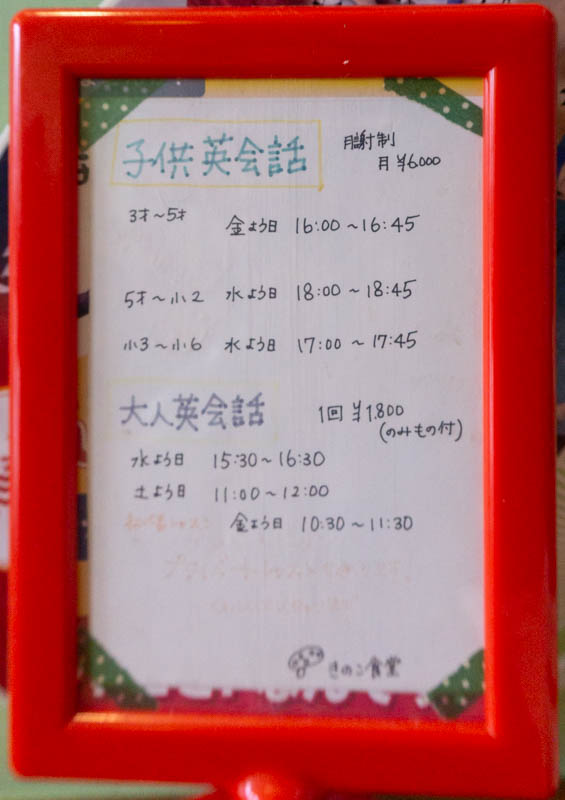 子供英会話
月謝制
月 ¥6,000
3才～5才 金よう日 16:00～16:45
5才～小2 水よう日 18:00～18:45
小3～小6 水よう日 17:00～17:45
大人英会話 1回 ¥1,800
(のみもの付)
水よう日 15:30～16:30
土よう日 11:00～12:00
金よう日 10:30～11:30
きのこ食堂